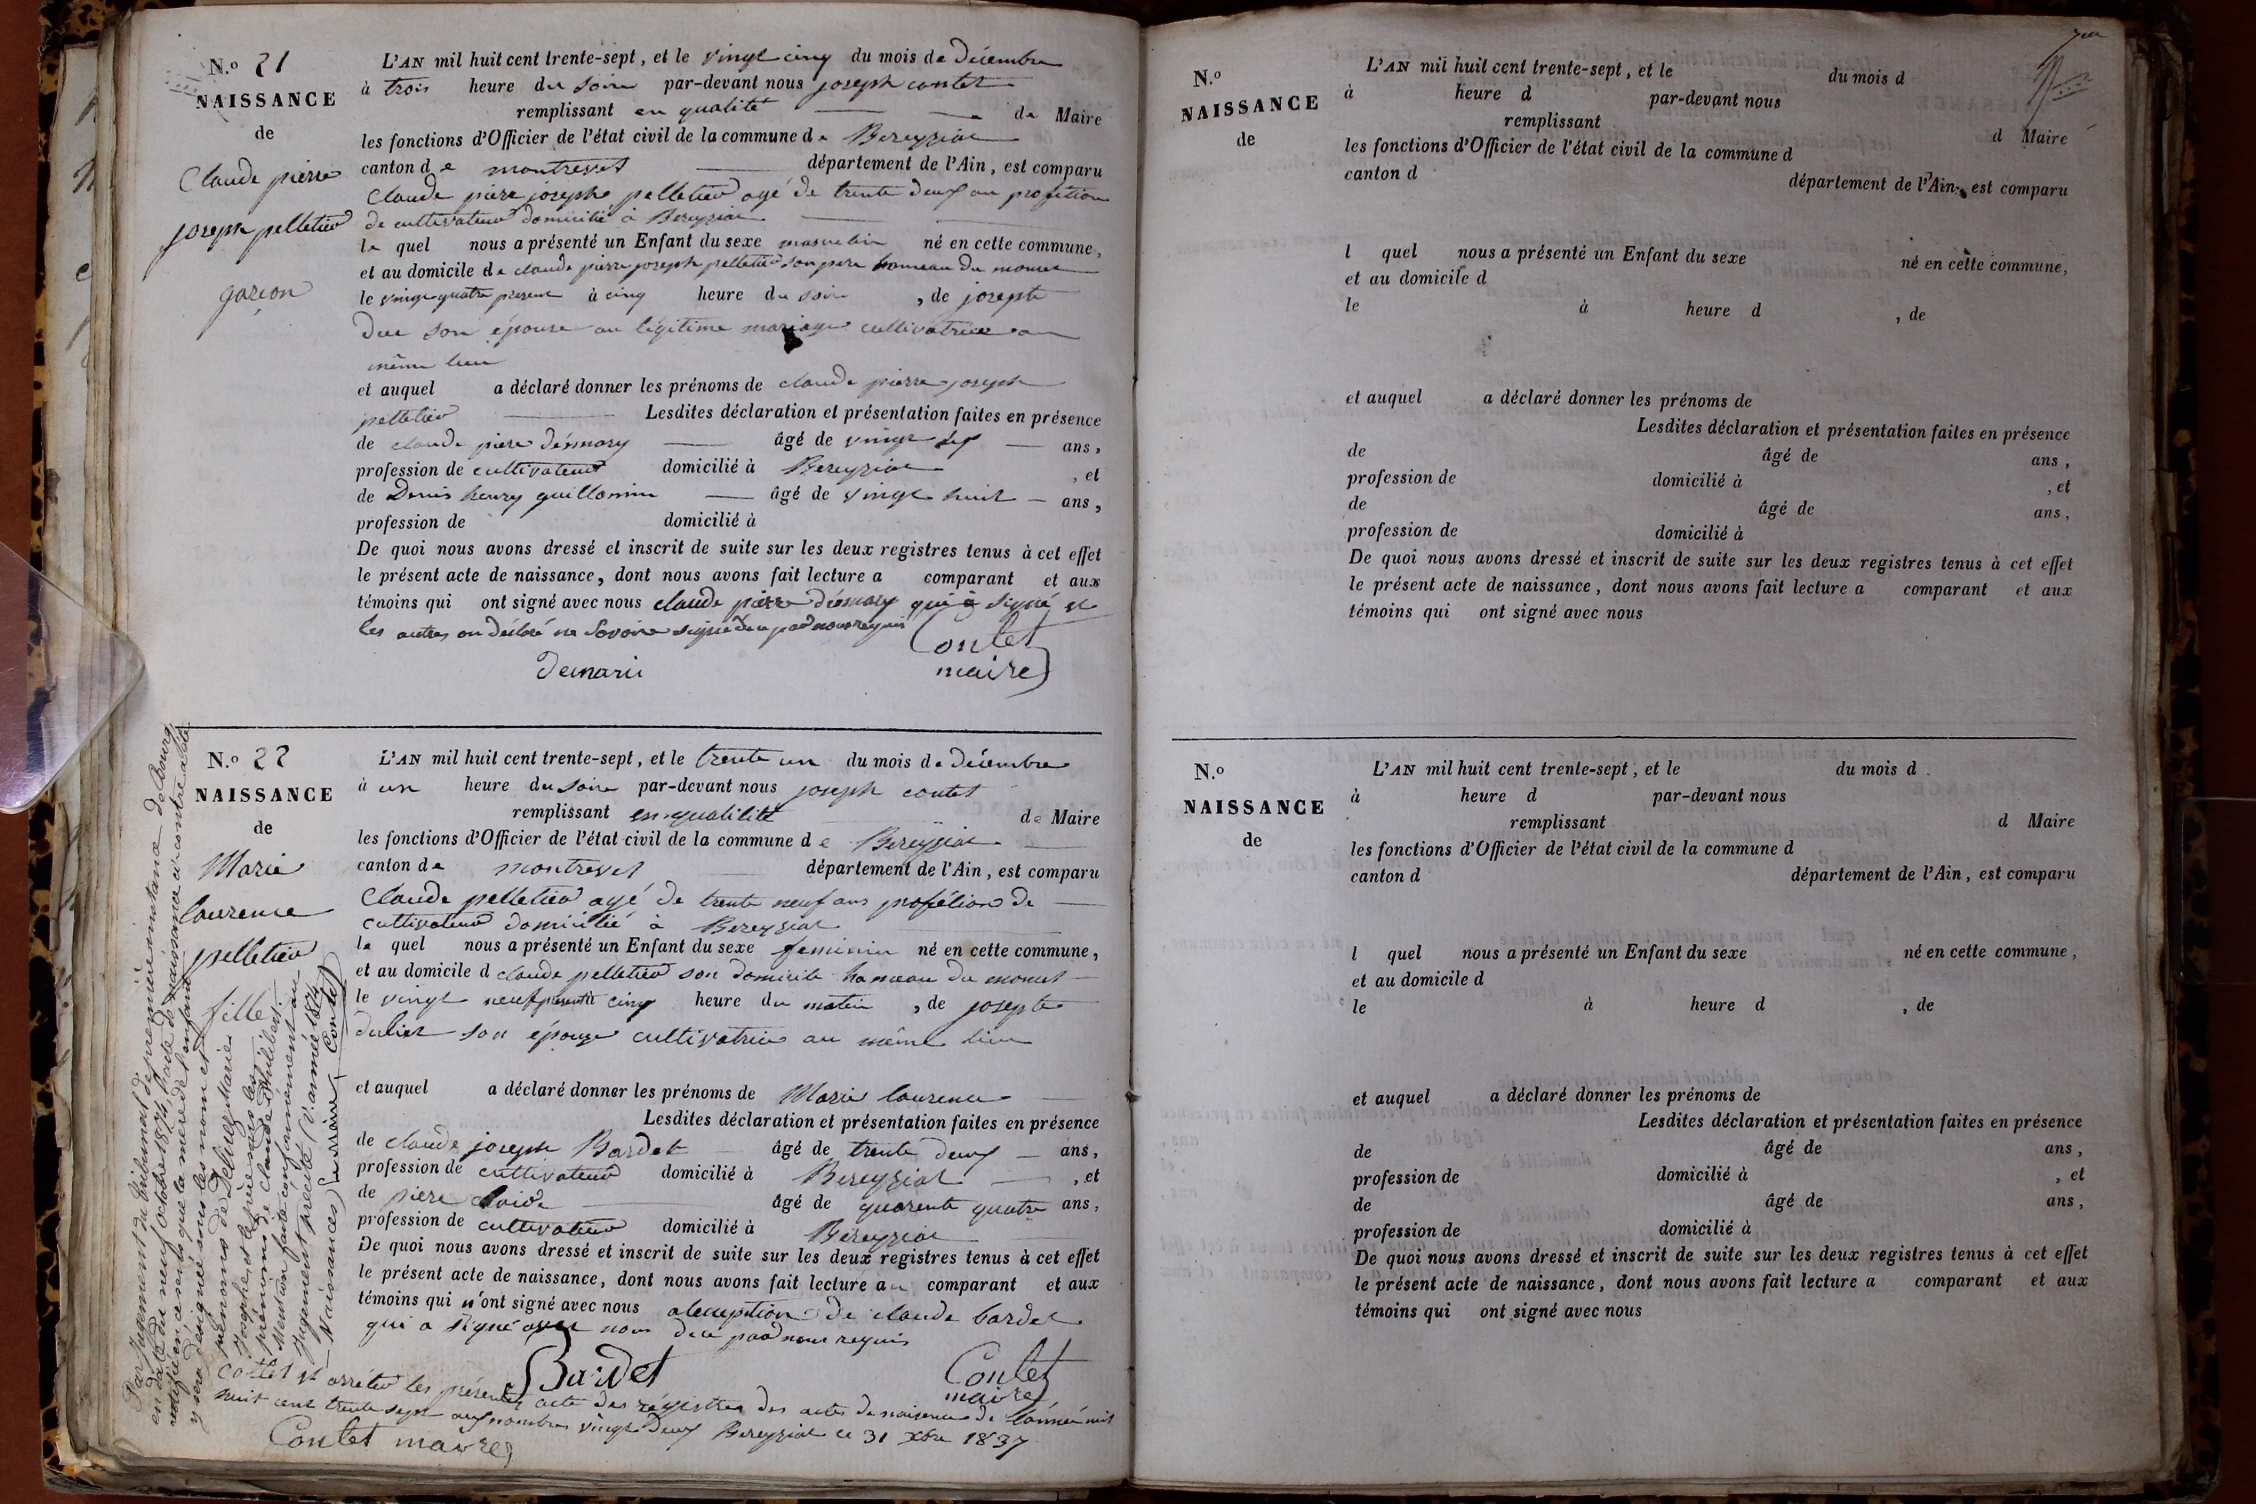 N.o 21
NAISSANCE
de
Claude pierre
joseph pelletier
garcon
L'AN mil huit cent trente-sept, et le vingt cinq du mois de décembre
à trois heure du soire par-devant nous joseph contet
remplissant en qualité de Maire
les fonctions d'Officier de l'état civil de la commune de Bereyziat
canton de montrevel département de l'Ain, est comparu
Claude piere joseph pelletier agé de trente deux an profetion
de cultivateur domicilié à Bereyziat
le quel nous a présenté un Enfant du sexe masculin né en cette commune,
et au domicile de claude pierre joseph pelletier son pere hameau du
le vingt quatre present à cinq heure du soire, de josepte
son épouse au légitime mariage cultivatrice au
même lieu
et auquel a déclaré donner les prénoms de claude pierre joseph
pelletier Lesdites déclaration et présentation faites en présence
de claude piere démary âgé de vingt ans,
profession de cultivateur domicilié à Bereyziat, et
de Denis henry guillomin âgé de vingt huit ans,
profession de domicilié à
De quoi nous avons dressé et inscrit de suite sur les deux registres tenus à cet effet
le présent acte de naissance, dont nous avons fait lecture a comparant et aux
témoins qui ont signé avec nous claude pierre démary qui a signé et
les autres on déclaré ne savoire signé de ce par nous requis
Contet
demarie maire
N.o 22
NAISSANCE
de
Marie
laurence
pelletier
fille
L'AN mil huit cent trente-sept, et le trente un du mois de décembre
à un heure du soire par-devant nous joseph contet
remplissant en qualité de Maire
les fonctions d'Officier de l'état civil de la commune de Bereyziat
canton de montrevel département de l'Ain, est comparu
Claude pelletier agé de trente neuf ans profétion de
cultivateur domicilié à Bereyziat
le quel nous a présenté un Enfant du sexe feminin né en cette commune,
et au domicile d claude pelletier son domicile hameau du
le vingt neuf cinq heure du matin, de josepte
son épouse cultivatrice au même lieu
et auquel a déclaré donner les prénoms de Marie laurence
Lesdites déclaration et présentation faites en présence
de claude joseph Bardet âgé de trente deux ans,
profession de cultivateur domicilié à Bereyziat, et
de piere âgé de quarente quatre ans,
profession de cultivateur domicilié à Bereyziat
De quoi nous avons dressé et inscrit de suite sur les deux registres tenus à cet effet
le présent acte de naissance, dont nous avons fait lecture au comparant et aux
témoins qui n'ont signé avec nous de claude bardet
qui a signé avec nous de ce par nous requis
Bardet Contet
maire
et arrêter les présents acte des régistres des actes de naisence de l'année mil
huit cent trente sept au nombre vingt deux Bereyziat ce 31 Xbre 1837
Contet maire
Par jugement du tribunal de première instance de Bourg,
en date du neuf octobre 1874, l'acte de naissance ci-contre a été
rectifié en ce sens que la mère de l'enfant
y sera désignée sous les nom et
prénoms de Marie
Josephe, et le père sous les
prénoms de Claude Philibert.
Mention faite conformément au
jugement précité (V. année 1874
Naissances) Le Maire, Contet
N.o
NAISSANCE
de
L'AN mil huit cent trente-sept, et le du mois d
à heure d par-devant nous
remplissant d Maire
les fonctions d'Officier de l'état civil de la commune d
canton d département de l'Ain, est comparu
l quel nous a présenté un Enfant du sexe né en cette commune,
et au domicile d
le à heure d, de
et auquel a déclaré donner les prénoms de
Lesdites déclaration et présentation faites en présence
de âgé de ans,
profession de domicilié à, et
de âgé de ans,
profession de domicilié à
De quoi nous avons dressé et inscrit de suite sur les deux registres tenus à cet effet
le présent acte de naissance, dont nous avons fait lecture a comparant et aux
témoins qui ont signé avec nous
N.o
NAISSANCE
de
L'AN mil huit cent trente-sept, et le du mois d
à heure d par-devant nous
remplissant d Maire
les fonctions d'Officier de l'état civil de la commune d
canton d département de l'Ain, est comparu
l quel nous a présenté un Enfant du sexe né en cette commune,
et au domicile d
le à heure d, de
et auquel a déclaré donner les prénoms de
Lesdites déclaration et présentation faites en présence
de âgé de ans,
profession de domicilié à, et
de âgé de ans,
profession de domicilié à
De quoi nous avons dressé et inscrit de suite sur les deux registres tenus à cet effet
le présent acte de naissance, dont nous avons fait lecture a comparant et aux
témoins qui ont signé avec nous